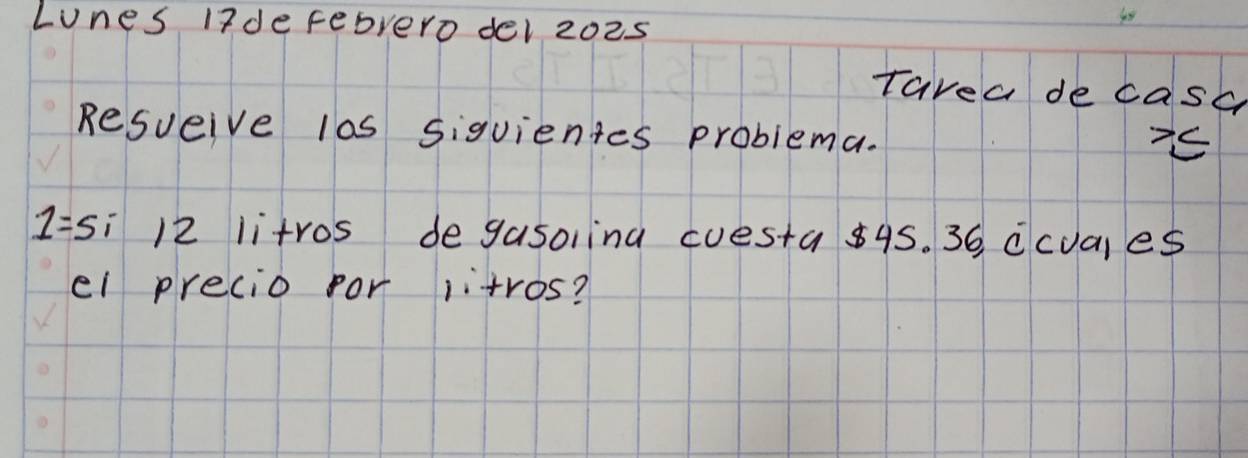 Lunes 17 de Febrero del 2025
Tarea de casa
Resuelve los siguientes problema.
1= si 12 litros de gasolina cuesta $45.36, ¿cual es
el precio por litros?